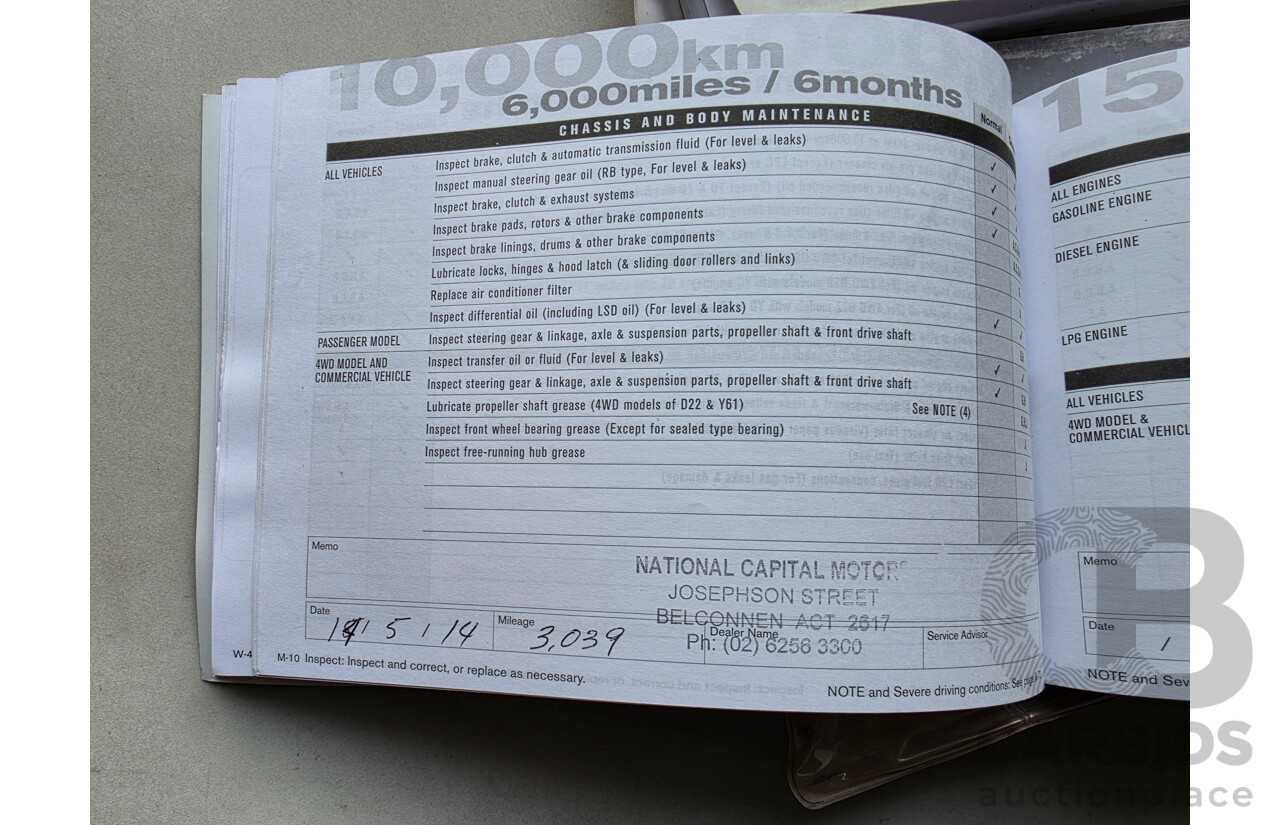 10,000km
6,000miles / 6months
CHASSIS AND BODY MAINTENANCE
Normal
ALL VEHICLES
Inspect brake, clutch & automatic transmission fluid (For level & leaks)
Inspect manual steering gear oil (RB type, For level & leaks)
Inspect brake, clutch & exhaust systems
Inspect brake pads, rotors & other brake components
Inspect brake linings, drums & other brake components
Lubricate locks, hinges & hood latch (& sliding door rollers and links)
Replace air conditioner filter
Inspect differential oil (including LSD oil) (For level & leaks)
PASSENGER MODEL
Inspect steering gear & linkage, axle & suspension parts, propeller shaft & front drive shaft
4WD MODEL AND
COMMERCIAL VEHICLE
Inspect transfer oil or fluid (For level & leaks)
Inspect steering gear & linkage, axle & suspension parts, propeller shaft & front drive shaft
Lubricate propeller shaft grease (4WD models of D22 & Y61) See NOTE (4)
Inspect front wheel bearing grease (Except for sealed type bearing)
Inspect free-running hub grease
Memo
NATIONAL CAPITAL MOTORS
JOSEPHSON STREET
BELCONNEN ACT 2617
Ph: (02) 6256 3300
Date
/ 5 / 14
Mileage
3,039
Dealer Name
Service Advisor
W-4
M-10 Inspect: Inspect and correct, or replace as necessary.
NOTE and Severe driving conditions: See
15
ALL ENGINES
GASOLINE ENGINE
DIESEL ENGINE
LPG ENGINE
ALL VEHICLES
4WD MODEL &
COMMERCIAL VEHICL
Memo
Date
/
NOTE and Sev
CARBIDS
auctionplace